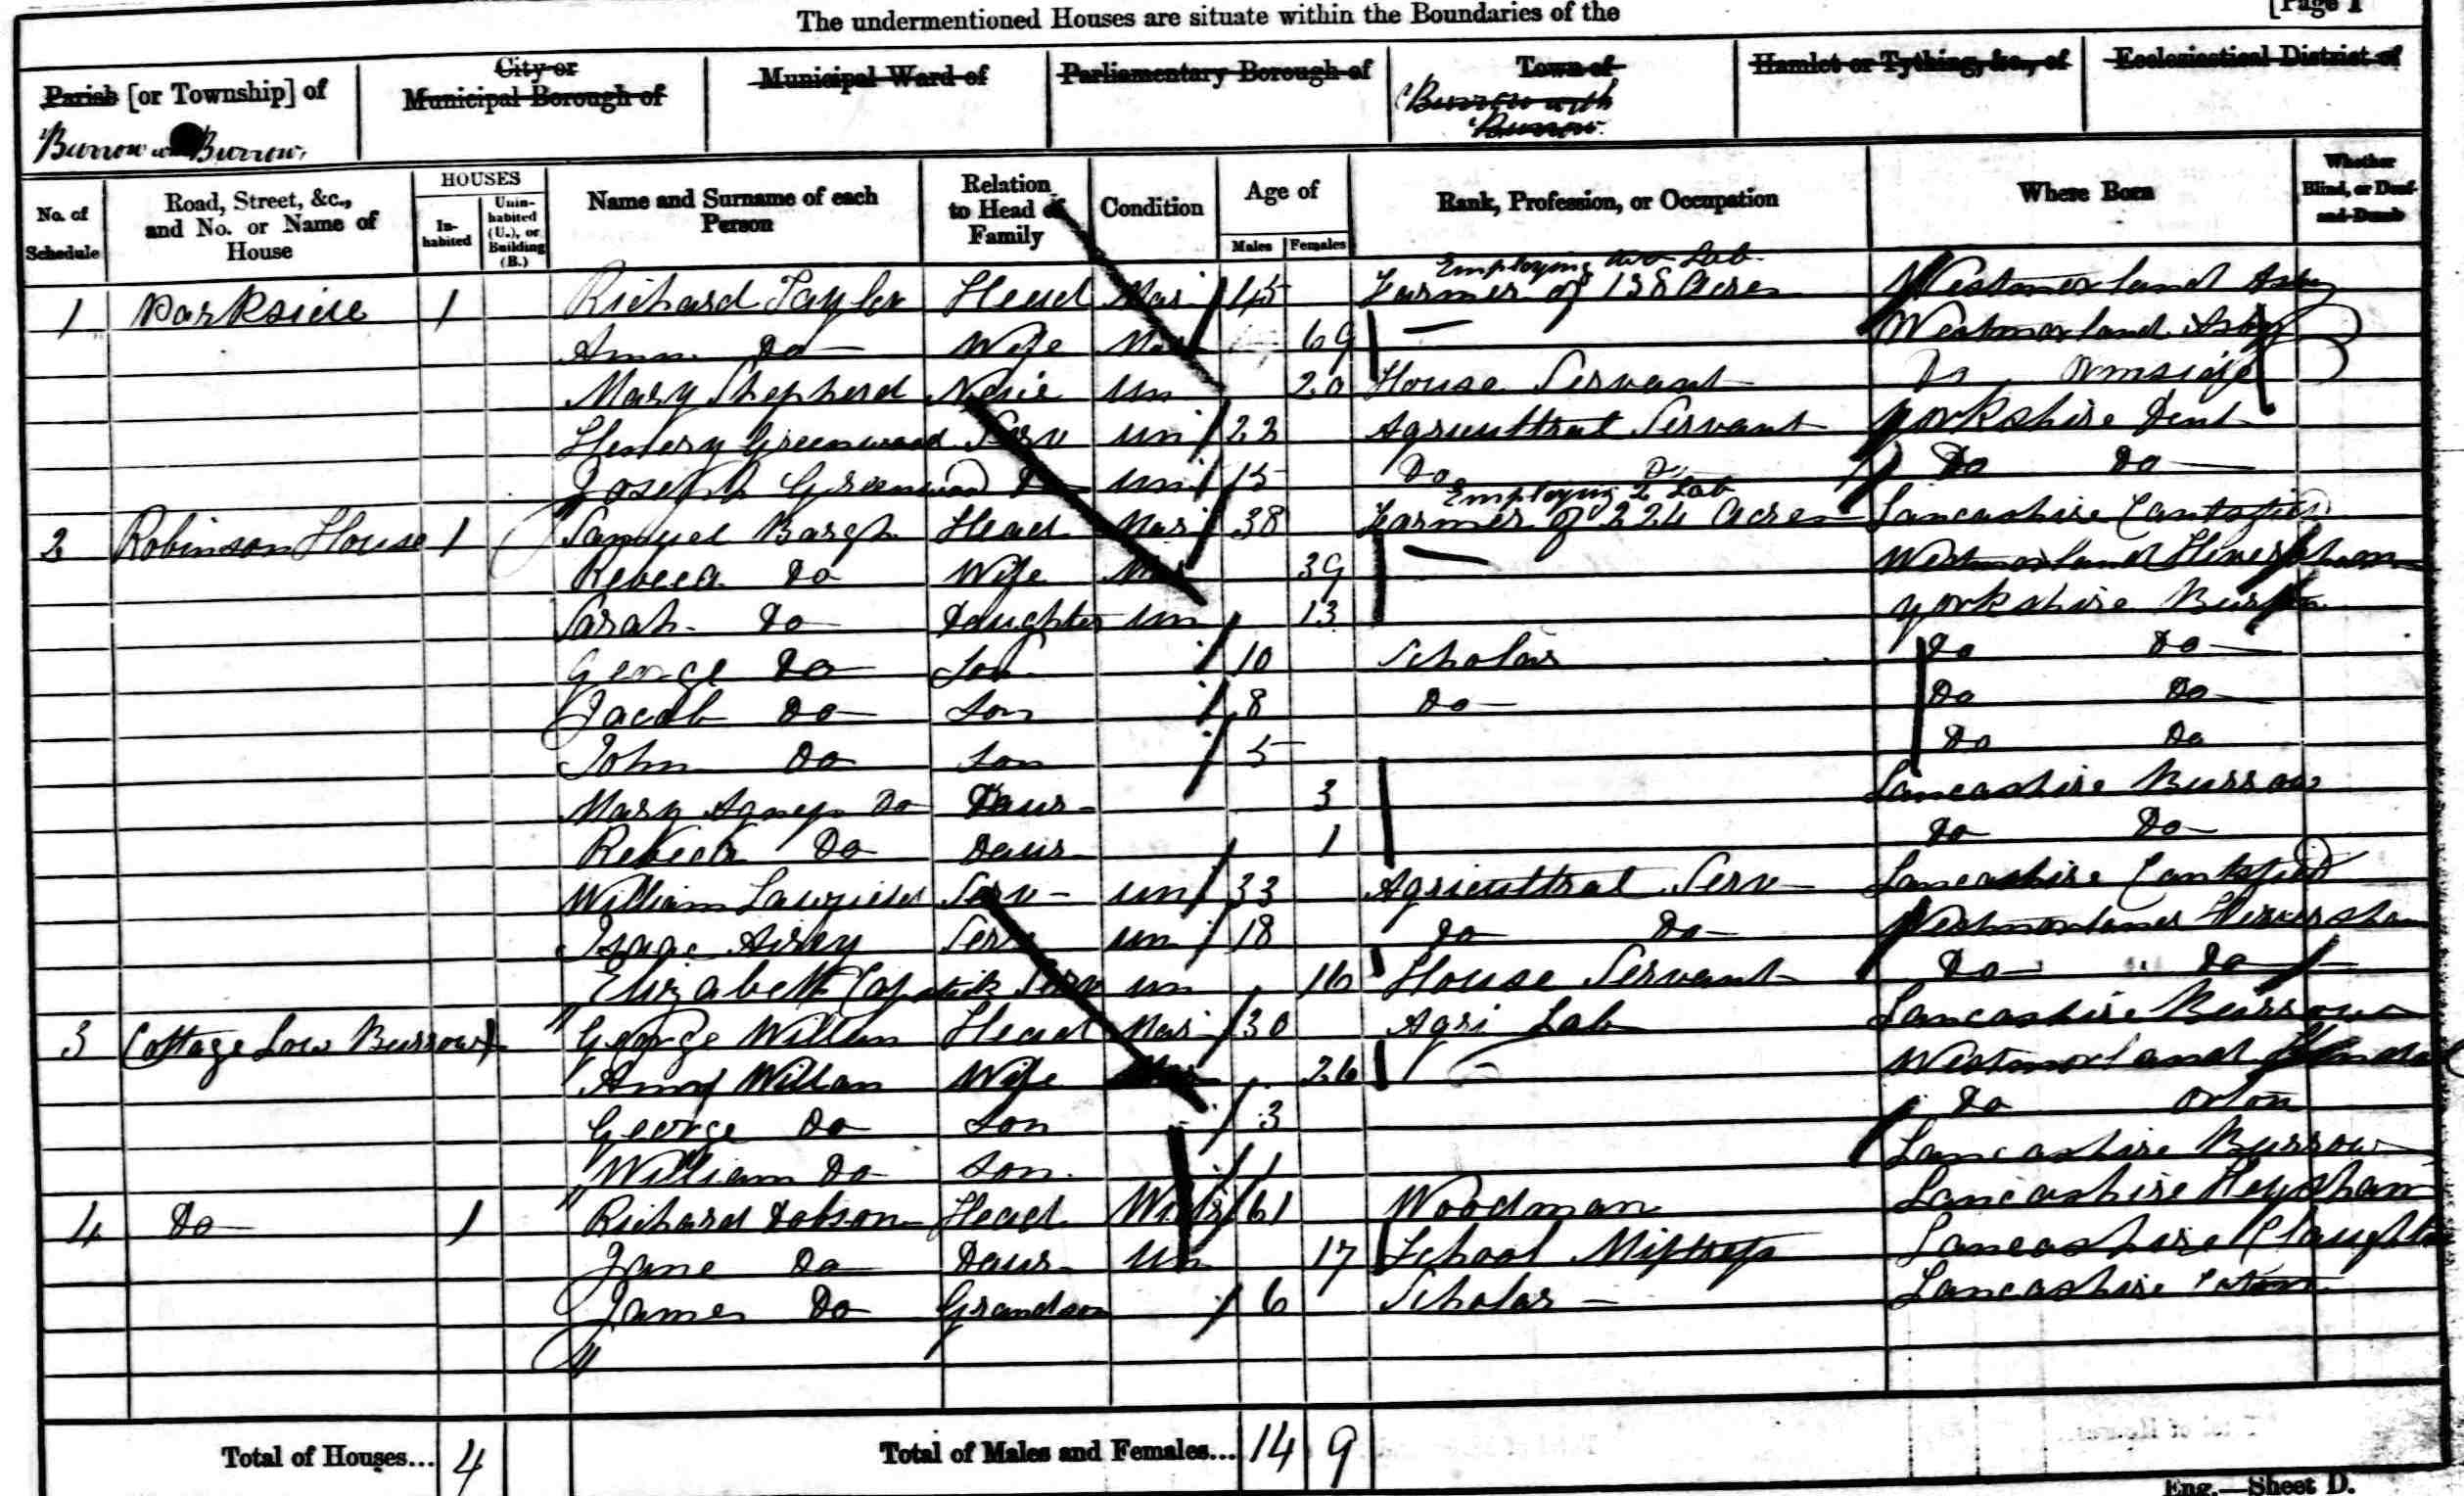 The undermentioned Houses are situate within the Boundaries of the [Page 1
Parish [or Township] of City or Municipal Borough of Municipal Ward of Parliamentary Borough of Town of Hamlet or Tything, &c., of Ecclesiastical District of
Burrow Burrow. Burrow with Burrow.
No. of Schedule Road, Street, &c., and No. or Name of House HOUSES Inhabited Uninhabited (U.), or Building (B.) Name and Surname of each Person Relation to Head of Family Condition Age of Males Females Rank, Profession, or Occupation Where Born Whether Blind, or Deaf-and-Dumb
1 Parkside 1 Richard Tayler Head Mar 45 Farmer of 138 Acres Employing two Lab Westmorland Asby
Ann Do Wife Mar 69 — Westmorland Asby
Mary Shepherd Neice Un 20 House Servant Do Ormside
Henery Greenwood Serv Un 22 Agricultral Servant Yorkshire Dent
Joseph Greenwood Do Un 15 Do Do Do Do
2 Robinson House 1 Samuel Bargh Head Mar 38 Farmer of 224 Acres Employing 2 Lab Lancashire Cantsfield
Rebeca Do Wife Mar 39 — Westmorland Heversham
Sarah Do Daughter Un 13 Yorkshire Burton
George Do Son 10 Scholar Do Do
Jacob Do Son 8 Do Do Do
John Do Son 5 Do Do
Mary Agness Do Daur 3 Lancashire Burrow
Rebeca Do Daur 1 Do Do
William Serv Un 33 Agricultral Serv Lancashire Cantsfield
Isaac Airey Serv Un 18 Do Do Westmorland Heversham
Elizabeth Capstick Serv Un 16 House Servant Do Do
3 Cottage Low Burrow 1 George Willan Head Mar 30 Agri Lab Lancashire Burrow
Willan Wife Mar 26 Westmorland Kendal
George Do Son 3 Do Orton
William Do Son 1 Lancashire Burrow
4 Do 1 Richard Dobson Head Widr 61 Woodman Lancashire Heysham
Jane Do Daur Un 17 School Mistress Lancashire Claughton
James Do Grandson 6 Scholar Lancashire Caton
Total of Houses... 4 Total of Males and Females... 14 9
Eng.—Sheet D.